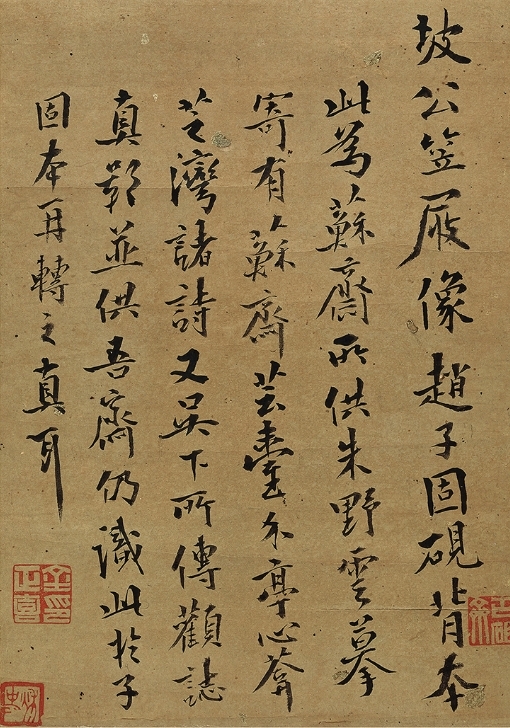 坡公笠屐像趙子固硯背本
此為蘇齋所供朱野雲摹
寄有蘇齋芸臺介亭心葊
芝灣諸詩又吳下所傳顴誌
真影並供吾齋仍識此於子
固本再轉之真耳